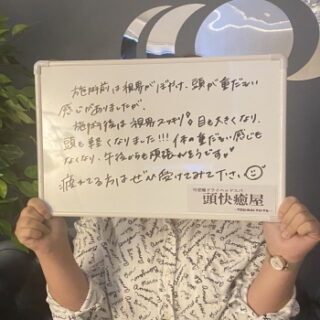 施術前は視界がぼやけ、頭が重だるい
感じがありましたが、
施術後は視界スッキリ!。目も大きくなり、
頭も軽くなりました!!! 体の重だるい感じも
なくなり、午後からも頑張れそうです♥
疲れてる方はぜひ受けてみて下さい☺
頭快癒屋